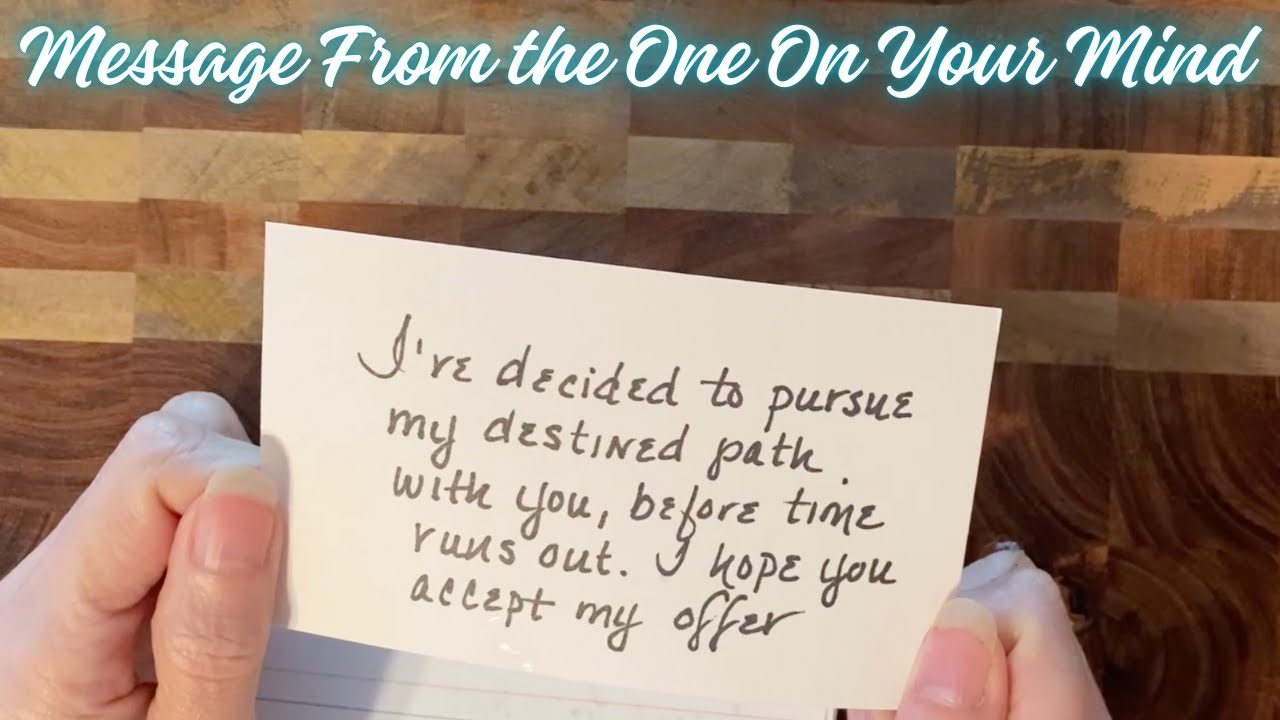 Message From the One On Your Mind
I've decided to pursue
my destined path.
with you, before time
runs out. I hope you
accept my offer